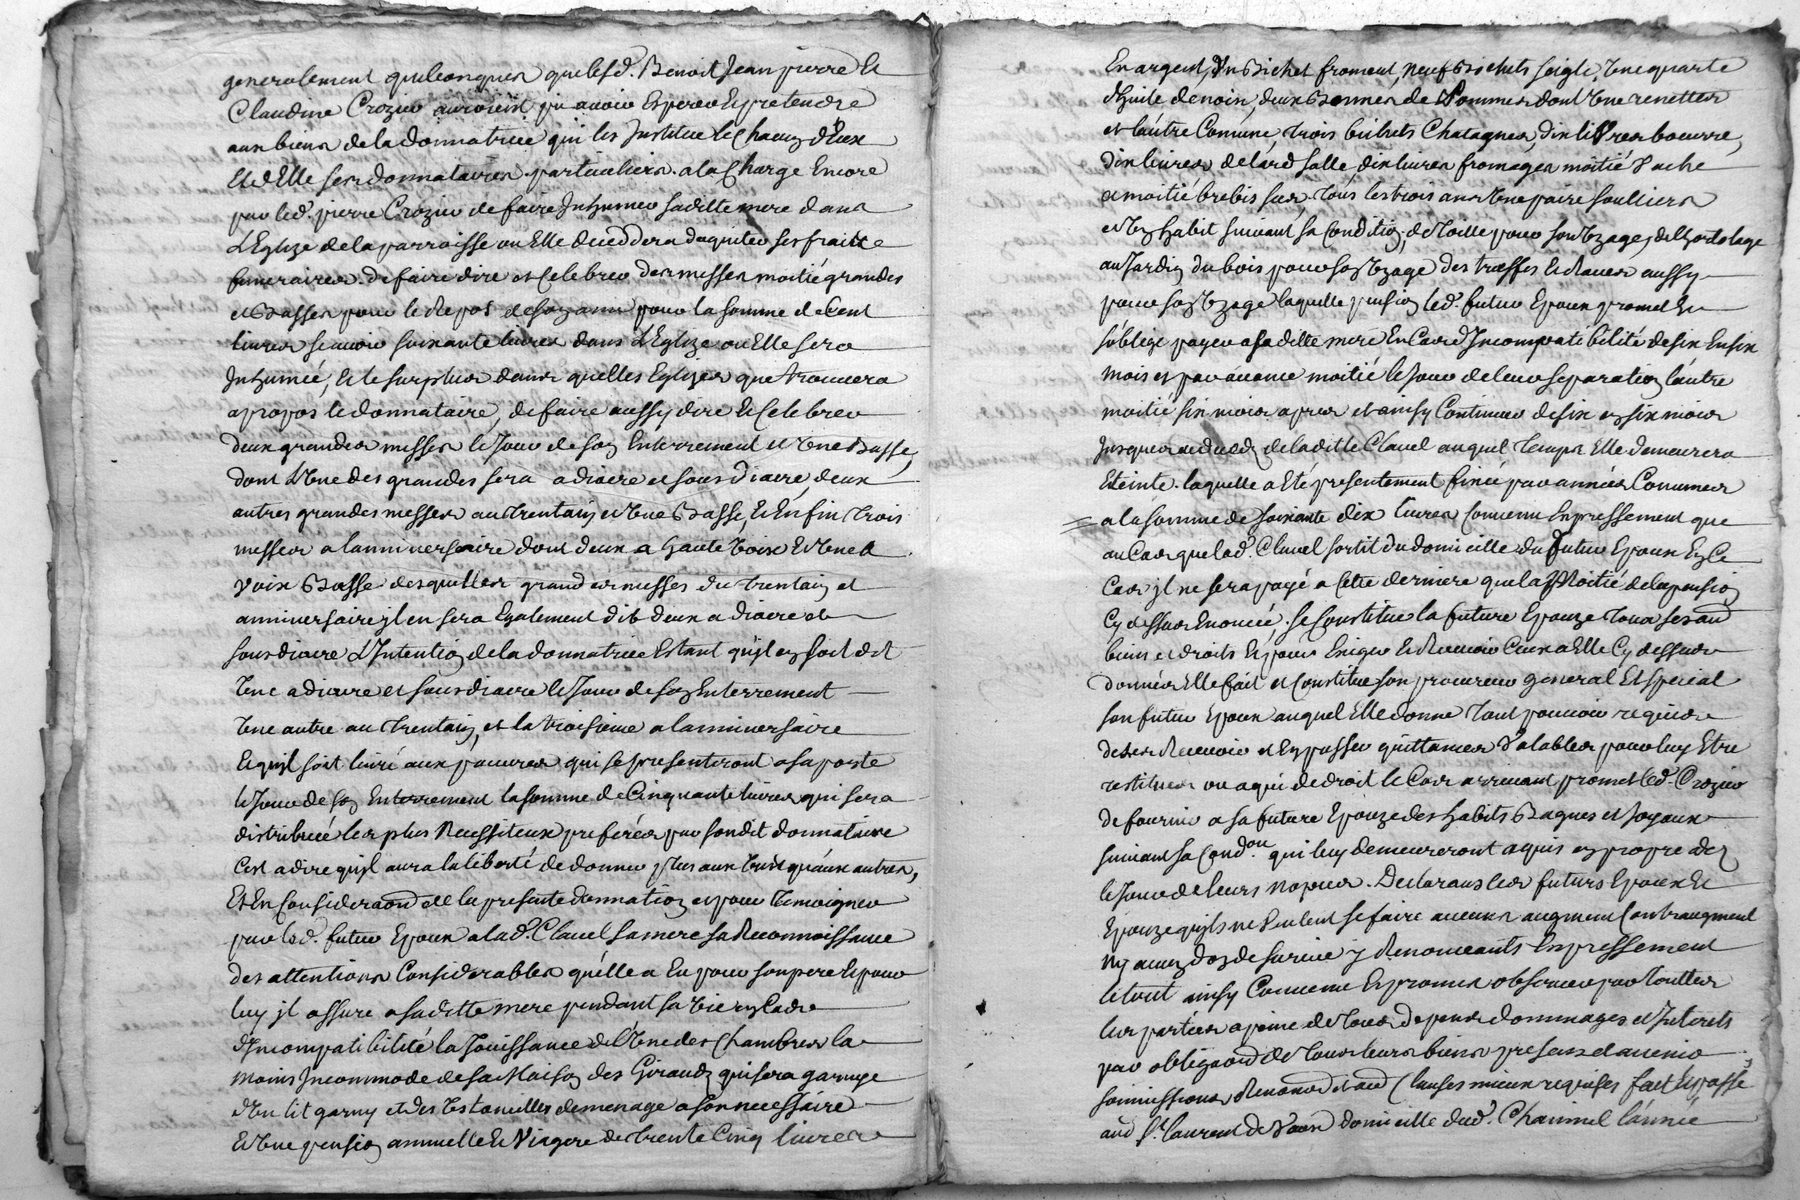 generalement quelconques que lesd. Benoit Jean pierre et
Claudine Crozier auroient pu avoir Esperer Et pretendre
aux biens de la donnatrice qui les Institue Et Chacun d'Eux
Et d'Elle ses donnataires particuliers a la Charge Encore
par led. pierre Crozier de faire Inhumer sa ditte mere dans
L'Eglize de la parroisse ou Elle deceddera d'aquiter ses fraits
funeraires de faire dire et Celebrer des messes moitié grandes
et Basses pour le Repos de son ame pour la somme de Cent
livres scavoir soixante livres dans L'Eglize ou Elle sera
Inhumeé, Et le surplus dans quelles Eglizes que trouvera
apropos le donnataire, de faire aussy dire Et Celebrer
deux grandes messes le Jour de son Enterrement et Une Basse,
dont L'Une des grandes sera a diacre et sous diacre, deux
autres grandes messes au trentain et Une Basse, Et Enfin trois
messes a lanniversaire dont deux a haute Voix Et Une a
Voix Basse desquelles grandes messes du trentain et
anniversaire jl en sera Egalement dit deux a diacre et
sous diacre L'Intention de la donnatrice Estant qu'jl en soit dit
Une a diacre et sous diacre le Jour de son Enterrement
Une autre au trentain, et la troisieme a lanniversaire
Et qu'jl soit livré aux pauvres qui se presenteront a sa porte
le Jour de son Enterrement la somme de Cinquante livres qui sera
distribueé les plus Necessiteux preferés par son dit donnataire
C'est a dire qu'jl aura la liberté de donner plus aux Uns qu'aux autres,
Et En Consideraõn de la presente donnation et pour temoigner
par led. futur Epoux a lad. Clavel sa mere sa Reconnoissance
des attentions Considerables qu'elle a Eu pour son pere Et pour
luy jl assure a sa ditte mere pendant sa Vie en Cas
d'Incompatibilité la Jouissance de l'Une des Chambres la
moins Incommode de sa Maison des Giraudz qui sera garnye
d'Un lit garny et des Ustancilles de menage a son necessaire
Et Une pension annuelle Et Viagere de trente Cinq livres
En argent, d'Un Bichet froment, Neuf Bichets seigle, Une quarte
d'huile de noix, deux Bennes de Pommes dont Une renettes
et l'autre Comune, trois bichets Chatagnes, dix livres beurre,
dix livres de lárd salle, dix livres fromages moitié Vache
et moitié brebis sur tous les trois ans Une paire soulliers
et Un habit suivant sa Condition, de toille pour son Uzage, de l'hortolage
au Jardin du bois pour son Uzage des treffes Et Raves aussy
pour son Uzage laquelle pension led. futur Epoux promet Et
s'oblige payer a sa ditte mere En Cas d'Incompatibilité de six En six
mois et par avance moitié le Jour de leur separation l'autre
moitié six mois apres et ainsy Continuer de six en six mois
Jusques au deceds de la ditte Clavel auquel temps Elle demeurera
Eteinte. laquelle a Eté presentement fixée par années Comunes
a la somme de soixante dix livres Convenu Expressement que
au Cas que lad. Clavel sortit du domicille du futur Epoux En Ce
Cas jl ne sera payé a Cette derniere que la Moitié de la pension
Cy dessus Enoncée. Se Constitue la future Epouze tous ses aud
biens et droits Et pour Exiger Et Recevoir Ceux a Elle Cy dessus
donnés Elle fait et Constitue son procureur general Et special
son futur Epoux auquel Elle donne tout pouvoir requis
de les Recevoir et En passer quittances Valables pour luy Etre
restitués ou a qui de droit le Cas arrivant promet led. Crozier
de fournir a sa future Epouze des habits Bagues et Joyaux
suivant sa Cond.on qui luy demeureront aquis en propre dez
le Jour de leurs Nopces. Declarans les futurs Epoux Et
Epouze qu'jls ne Veulent se faire aucuns augment Contraugment
Ny aucun don de survie y Renonceants Expressement
le tout ainsy Convenu Et promis observer par toutes
les parties a peine de tous depens dommages et Interets
par obligaõn de tous leurs biens presens et avenir
soumissions, Renonõn et aud Clauses mieux requises fait Et passé
aud St. laurent de Vaux domicille dud. Charmel l'année